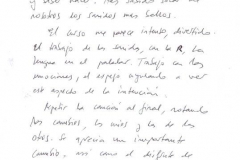 y uso nasal. Has sabido sacar de
nosotros los sonidos más bellos.
El curso me parece intenso, divertido.
El trabajo de los sonidos, con la R, la
lengua en el paladar. Trabajo con las
emociones, el espejo ayudando a ver
ese aspecto de la intención.
Repetir la canción al final, notando
los cambios, los míos y los de los
otros. Se aprecia un importante
cambio, así como el disfrute de